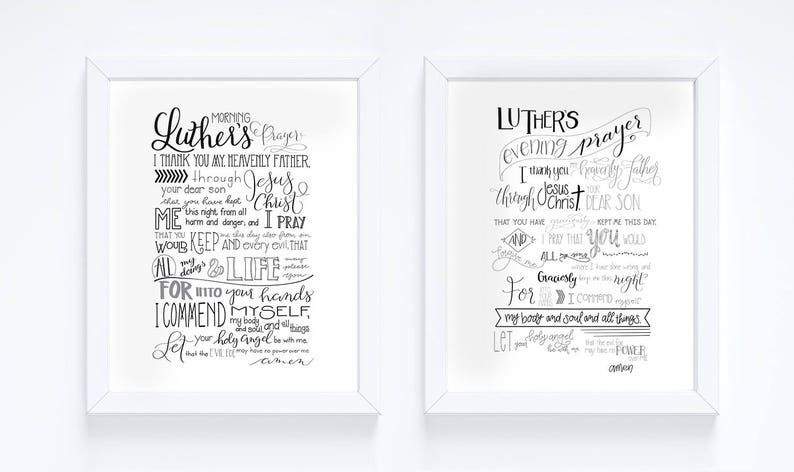 Luther's MORNING Prayer
I THANK YOU MY, HEAVENLY FATHER,
through Jesus
your dear son
Christ
that you have kept
ME this night from all
harm and danger, and I PRAY
THAT YOU WOULD KEEP me this day also from sin
AND every evil, THAT
ALL my doing's & LIFE may please you
FOR INTO your hands
I COMMEND MYSELF,
my body and soul, and all things
Let your holy angel be with me.
that the EVIL FOE may have no power over me
amen
LUTHER'S
evening prayer
I thank you my heavenly Father
through Jesus Christ, YOUR DEAR SON.
THAT YOU HAVE graciously KEPT ME THIS DAY,
AND I PRAY THAT YOU WOULD
forgive me ALL my sins
where I have done wrong and
Graciously keep me this night.
For INTO YOUR HANDS I COMMEND myself
my body and soul and all things.
LET your holy angel be with me
that the evil foe may have no POWER over ME
amen